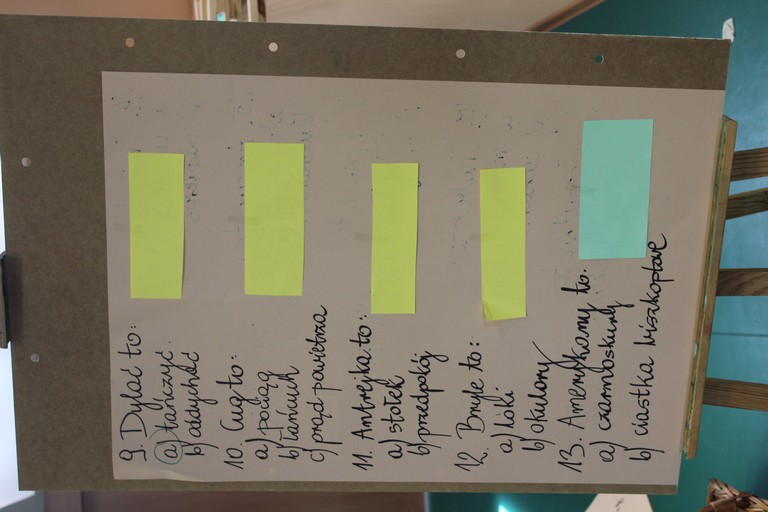 9. Dylać to:
a) tańczyć
b) oddychać
10. Cug to:
a) pociąg
b) łańcuch
c) prąd powietrza
11. Antrejka to:
a) stołek
b) przedpokój
12. Bryle to:
a) loki
b) okulary
13. Amerykany to:
a) czarnoskórzy
b) ciastka biszkoptowe